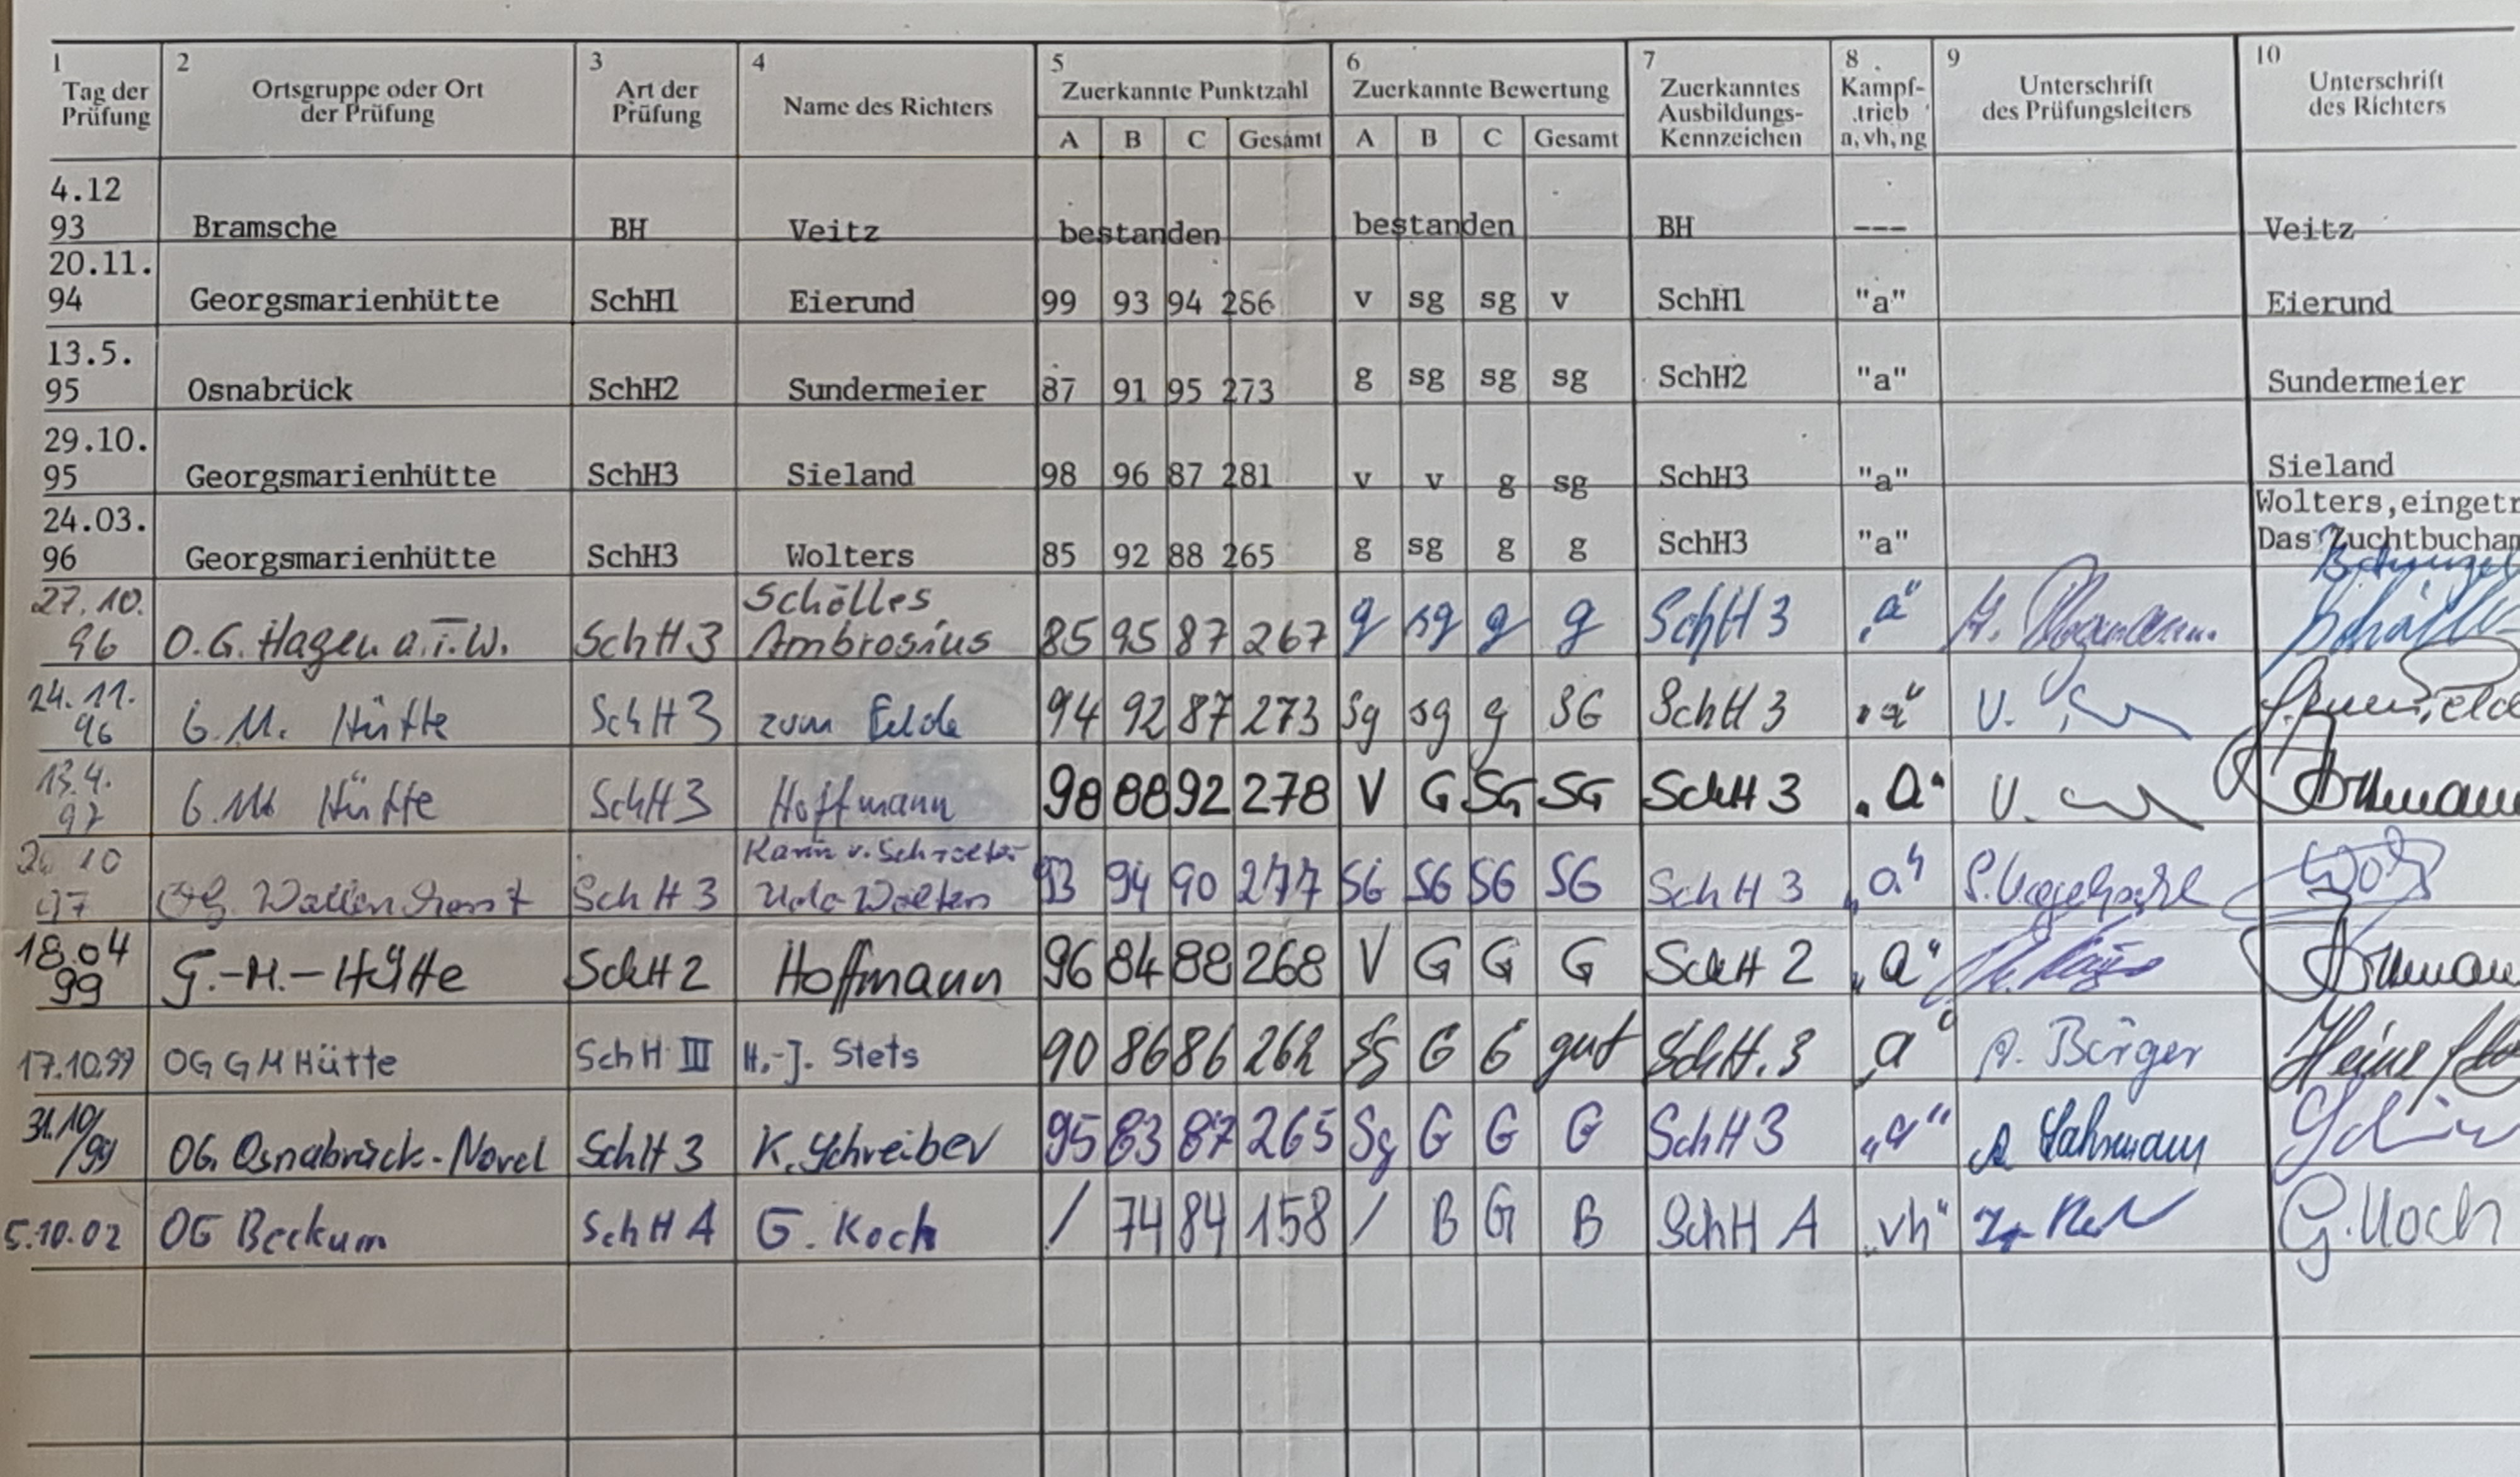 1 2 3 4 5 6 7 8 9 10
Tag der Prüfung Ortsgruppe oder Ort der Prüfung Art der Prüfung Name des Richters Zuerkannte Punktzahl Zuerkannte Bewertung Zuerkanntes Ausbildungs-Kennzeichen Kampf-trieb a, vh, ng Unterschrift des Prüfungsleiters Unterschrift des Richters
A B C Gesamt A B C Gesamt
4.12 93 Bramsche BH Veitz bestanden bestanden BH --- Veitz
20.11. 94 Georgsmarienhütte SchH1 Eierund 99 93 94 286 v sg sg v SchH1 "a" Eierund
13.5. 95 Osnabrück SchH2 Sundermeier 87 91 95 273 g sg sg sg SchH2 "a" Sundermeier
29.10. 95 Georgsmarienhütte SchH3 Sieland 98 96 87 281 v v g sg SchH3 "a" Sieland
24.03. 96 Georgsmarienhütte SchH3 Wolters 85 92 88 265 g sg g g SchH3 "a" Wolters,eingetr
Das Zuchtbucham
27.10. 96 O.G. Hagen a.T.W. SchH3 Schölles Ambrosius 85 95 87 267 g sg g g SchH 3 „a“
24.11. 96 G.M. Hütte SchH3 zum Felde 94 92 87 273 Sg sg g SG SchH 3 „a“
13.4. 97 G.M. Hütte SchH3 Hoffmann 98 88 92 278 V G SG SG SchH 3 „a“
10 97 OG. Wallenhorst SchH 3 Karin v. Schroeter Udo Wolters 93 94 90 277 SG SG SG SG SchH 3 „a“
18.04 99 G.-M.-Hütte SchH2 Hoffmann 96 84 88 268 V G G G SchH 2 „a“
17.10.99 OG GMHütte SchH III H.-J. Stets 90 86 86 262 Sg G G gut SchH.3 „a“ Börger
31.10/99 OG. Osnabrück-Nord SchH3 K. Schreiber 95 83 87 265 Sg G G G SchH3 „a“
5.10.02 OG Beckum SchH A G. Koch / 74 84 158 / B G B SchH A „vh“ G. Koch